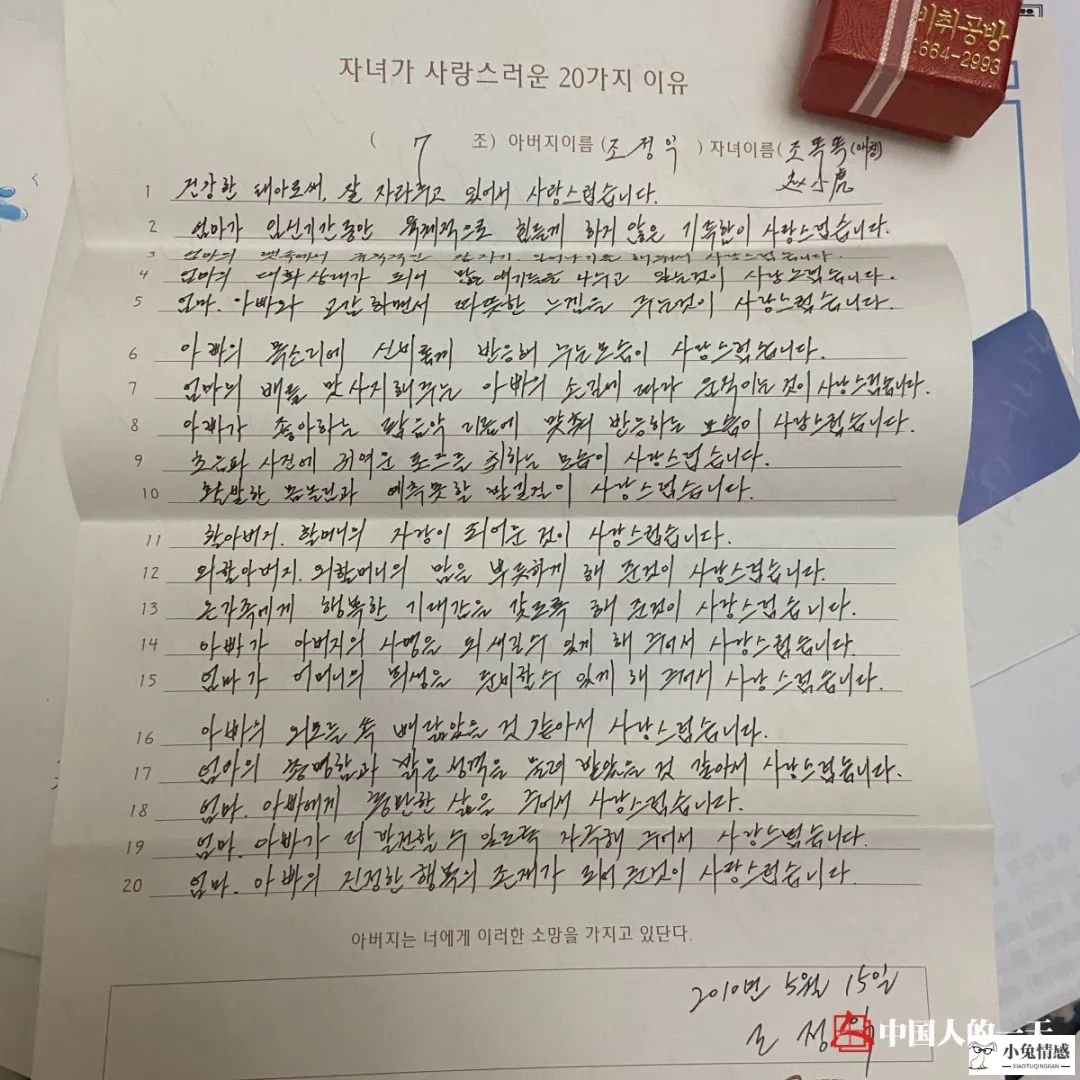 비취공방
:664-2993
자녀가 사랑스러운 20가지 이유
( 7 조) 아버지이름 (조정욱) 자녀이름 (조똑똑(아명)
赵小虎
1 건강한 태아로써, 잘 자라주고 있어서 사랑스럽습니다.
2 엄마가 임신기간동안 육체적으로 힘들게 하지 않은 기특함이 사랑스럽습니다.
3 엄마의 뱃속에서 사랑스럽습니다.
4 엄마의 대화상대가 되어 많은 얘기들을 나누고 있는것이 사랑스럽습니다.
5 엄마. 아빠와 교감하면서 따뜻한 느낌을 주는것이 사랑스럽습니다.
6 아빠의 목소리에 신비롭게 반응해 주는모습이 사랑스럽습니다.
7 엄마의 배를 맛사지해주는 아빠의 손길에 따라 움직이는 것이 사랑스럽습니다.
8 아빠가 좋아하는 팝음악 리듬에 맞춰 반응하는 모습이 사랑스럽습니다.
9 초음파 사진에 귀여운 포즈를 취하는 모습이 사랑스럽습니다.
10 활발한 몸놀림과 예측못할 발길질이 사랑스럽습니다.
11 할아버지. 할머니의 자랑이 되어준 것이 사랑스럽습니다.
12 외할아버지. 외할머니의 맘을 뿌듯하게 해 준것이 사랑스럽습니다.
13 온가족에게 행복한 기대감을 갖도록 해 준것이 사랑스럽습니다.
14 아빠가 아버지의 사명을 되새길수 있게 해 주어서 사랑스럽습니다.
15 엄마가 어머니의 희생을 준비할수 있게 해 주어서 사랑스럽습니다.
16 아빠의 외모를 쏙 빼닮았을 것 같아서 사랑스럽습니다.
17 엄마의 총명함과 밝은 성격을 물려 받았을 것 같아서 사랑스럽습니다.
18 엄마. 아빠에게 충만한 삶을 주어서 사랑스럽습니다.
19 엄마. 아빠가 더 발전할 수 있도록 자극해 주어서 사랑스럽습니다.
20 엄마. 아빠의 진정한 행복의 존재가 되어 준것이 사랑스럽습니다.
아버지는 너에게 이러한 소망을 가지고 있단다.
2010년 5월 15일
조 정 욱
中国人的一天
小兔情感
XIAOTUQINGGAN